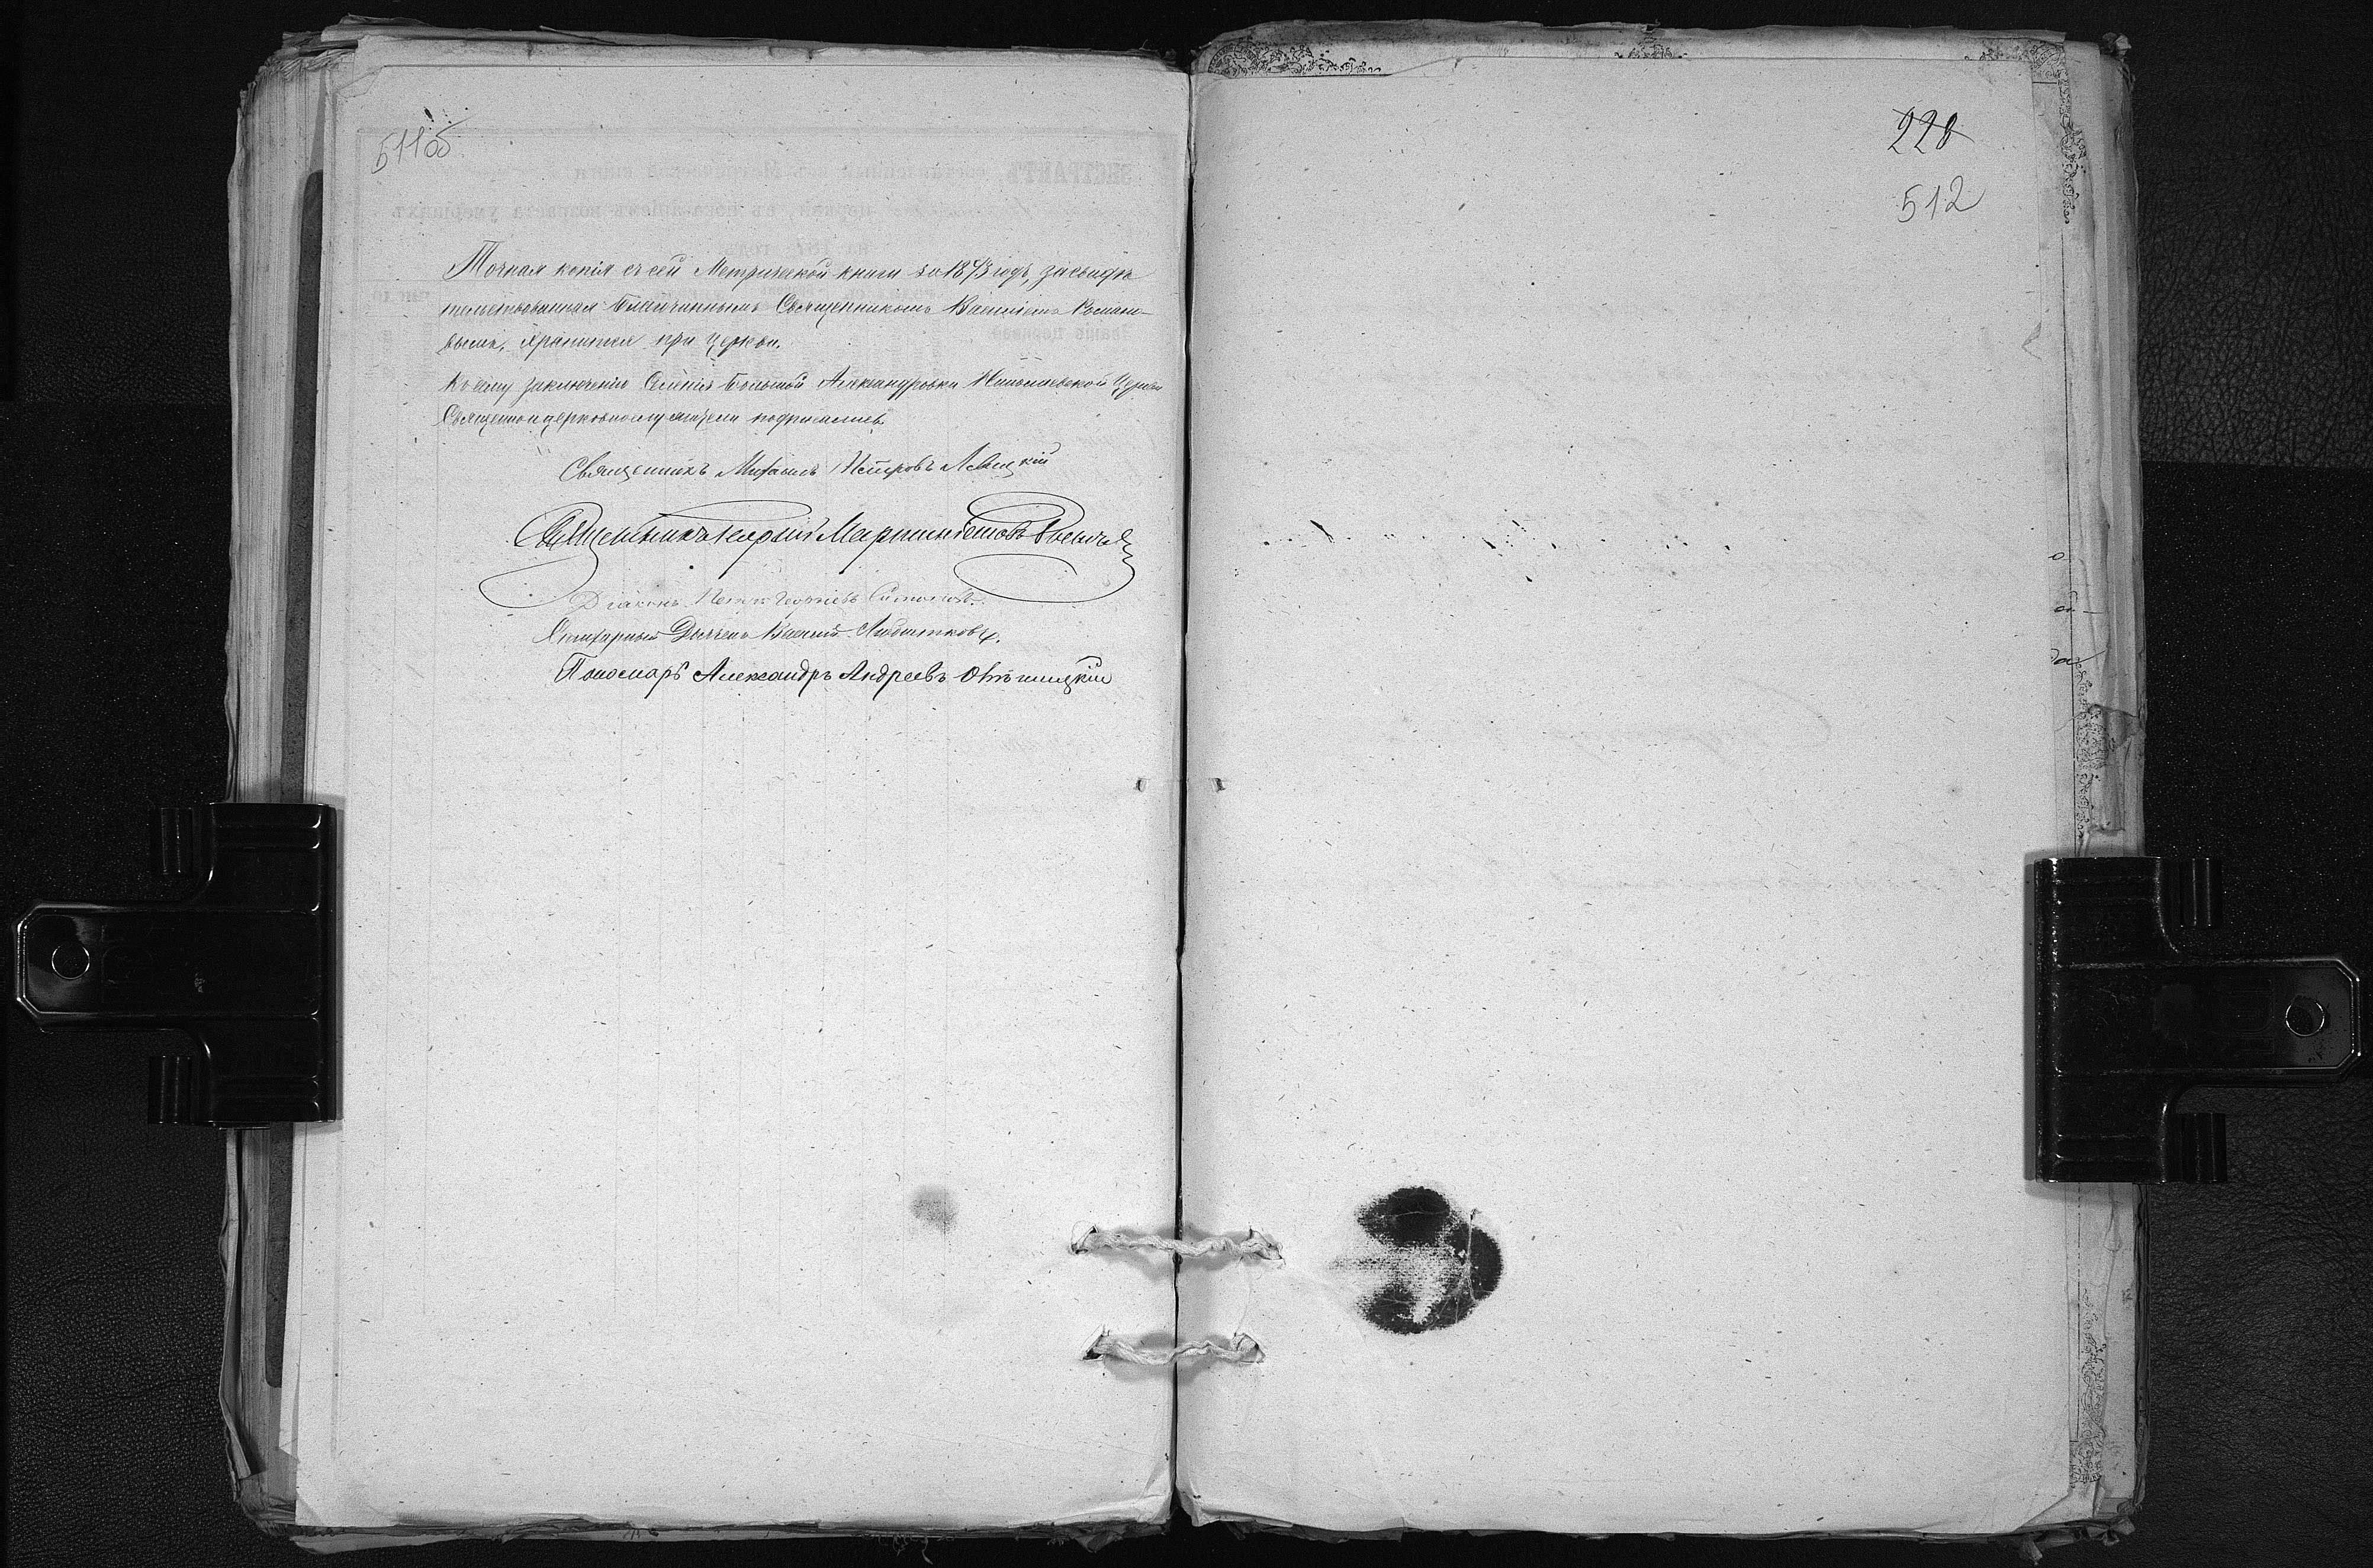 511об
Точная копія съ сей Метрической книги за 1873 годъ, засвидѣ
тельствованная Благочиннымъ Священникомъ Василіемъ Романо-
вымъ, хранится при церкви.
Къ сему заключенію Селенія Большой Александровки Николаевской Церкви
Священноицерковнослужители подписались
Священникъ Михаилъ Петровъ Левицкій
Священникъ
Діаконъ Георгіевъ
Дьячекъ Василій
Пономарь Александръ Андреевъ
228
512